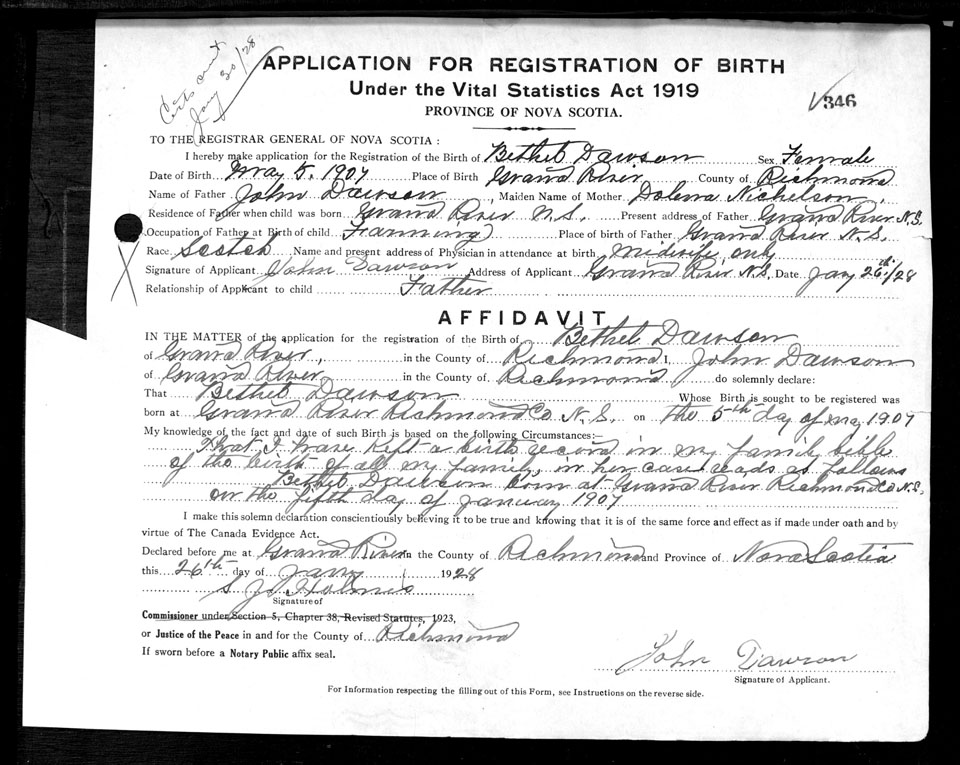 Certs cent
Jany 30/28
APPLICATION FOR REGISTRATION OF BIRTH
Under the Vital Statistics Act 1919
346
PROVINCE OF NOVA SCOTIA.
TO THE REGISTRAR GENERAL OF NOVA SCOTIA :
I hereby make application for the Registration of the Birth of Bethel Dawson Sex Female
Date of Birth May 5, 1907 Place of Birth Grand River County of Richmond
Name of Father John Dawson, Maiden Name of Mother Dolena Nicholson,
Residence of Father when child was born Grand River N.S. Present address of Father Grand River N.S.
Occupation of Father at Birth of child Farming Place of birth of Father Grand River N.S.
Race Scotch Name and present address of Physician in attendance at birth Midwife only
Signature of Applicant John Dawson Address of Applicant Grand River N.S. Date Jany 26th/28
Relationship of Applicant to child Father
AFFIDAVIT
IN THE MATTER of the application for the registration of the Birth of Bethel Dawson
of Grand River, in the County of Richmond I, John Dawson
of Grand River in the County of Richmond do solemnly declare:
That Bethel Dawson Whose Birth is sought to be registered was
born at Grand River Richmond Co N.S. on the 5th day of May 1907
My knowledge of the fact and date of such Birth is based on the following Circumstances:—
That I have kept a birth record in my family bible
of the birth of all my family, in her case reads as follows
Bethel Dawson born at Grand River Richmond Co N.S.
on the fifth day of January 1907
I make this solemn declaration conscientiously believing it to be true and knowing that it is of the same force and effect as if made under oath and by
virtue of The Canada Evidence Act.
Declared before me at Grand River in the County of Richmond and Province of Nova Scotia
this 26th day of Jany 1928
S J Holmes
Signature of
Commissioner under Section 5, Chapter 38, Revised Statutes, 1923,
or Justice of the Peace in and for the County of Richmond
If sworn before a Notary Public affix seal.
John Dawson
Signature of Applicant.
For Information respecting the filling out of this Form, see Instructions on the reverse side.